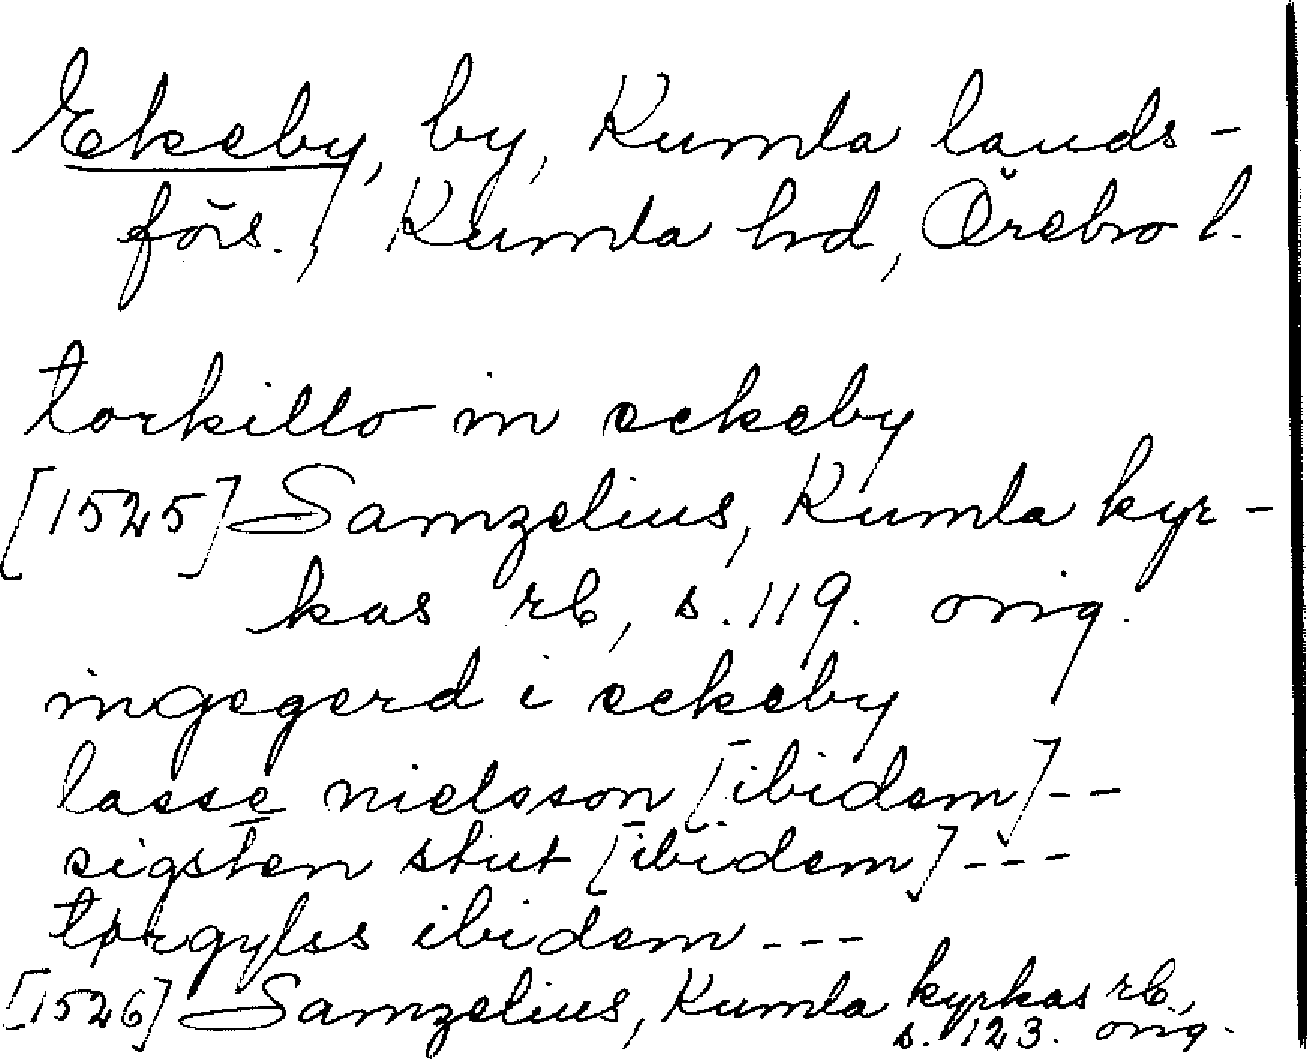 Ekeby, by, Kumla lands-
förs., Kumla hd, Örebro l.
torkillo in eekeby
[1525] Samzelius, Kumla kyr-
kas rb, s. 119. orig.
ingegerd i eekeby
lasse nielsson [ibidem] --
sigsten stut [ibidem] ---
torgylss ibidem ---
[1526] Samzelius, Kumla kyrkas rb,
s. 123. orig.